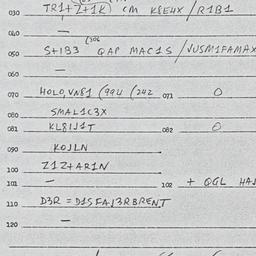 030 TR1+Z+1K) CM K8E4X / R1B1
040 —
(306
050 S+1B3 QAP MAC1S / VUSM1FAMAX
060 —
070 HOLO,VNE1 (994 (242 071 O
080 SMAL1C3X
081 KL8IJ1T 082 O
090 KOJLN
100 Z1Z+AR1N
101 — 102 + QGL HAJ
110 D3R = D1SFAJ3RBRENT
120 —